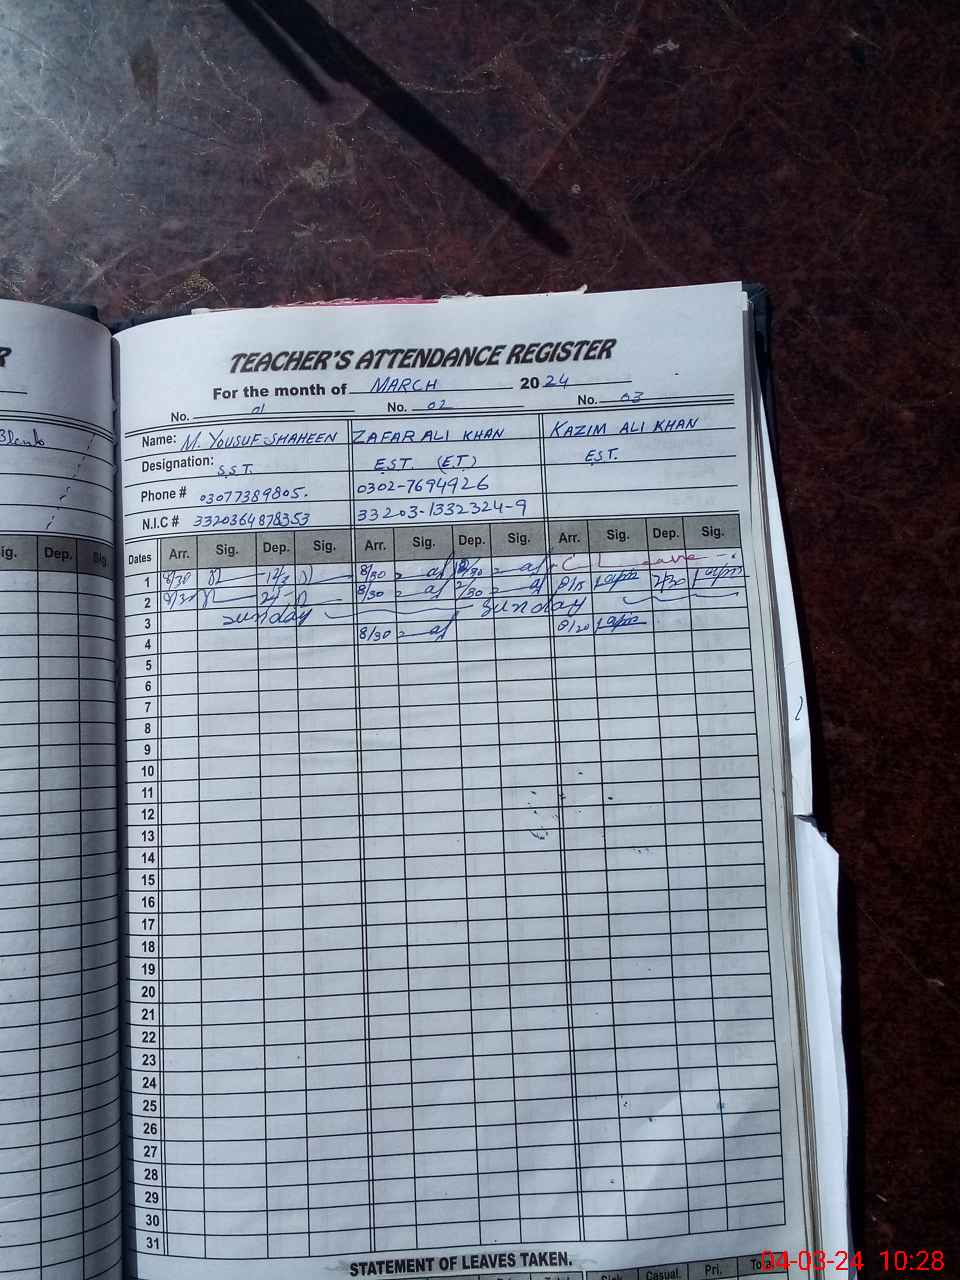 R
TEACHER'S ATTENDANCE REGISTER
For the month of MARCH 2024
No. 01 No. 02 No. 03
Name: M. YOUSUF SHAHEEN ZAFAR ALI KHAN KAZIM ALI KHAN
Designation: S.S.T. EST. (E.T.) EST.
Phone # 03077389805. 0302-7694926
N.I.C # 3320364878353 33203-1332324-9
ig. Dep. Sig.
Dates Arr. Sig. Dep. Sig. Arr. Sig. Dep. Sig. Arr. Sig. Dep. Sig.
1 8/30 8/30 C Leave
2 8/30 8/30 2/30 8/15 2/30
3 Sunday Sunday
4 8/30 8/20
5
6
7
8
9
10
11
12
13
14
15
16
17
18
19
20
21
22
23
24
25
26
27
28
29
30
31
STATEMENT OF LEAVES TAKEN.
Sick Casual. Pri. Total
04-03-24 10:28